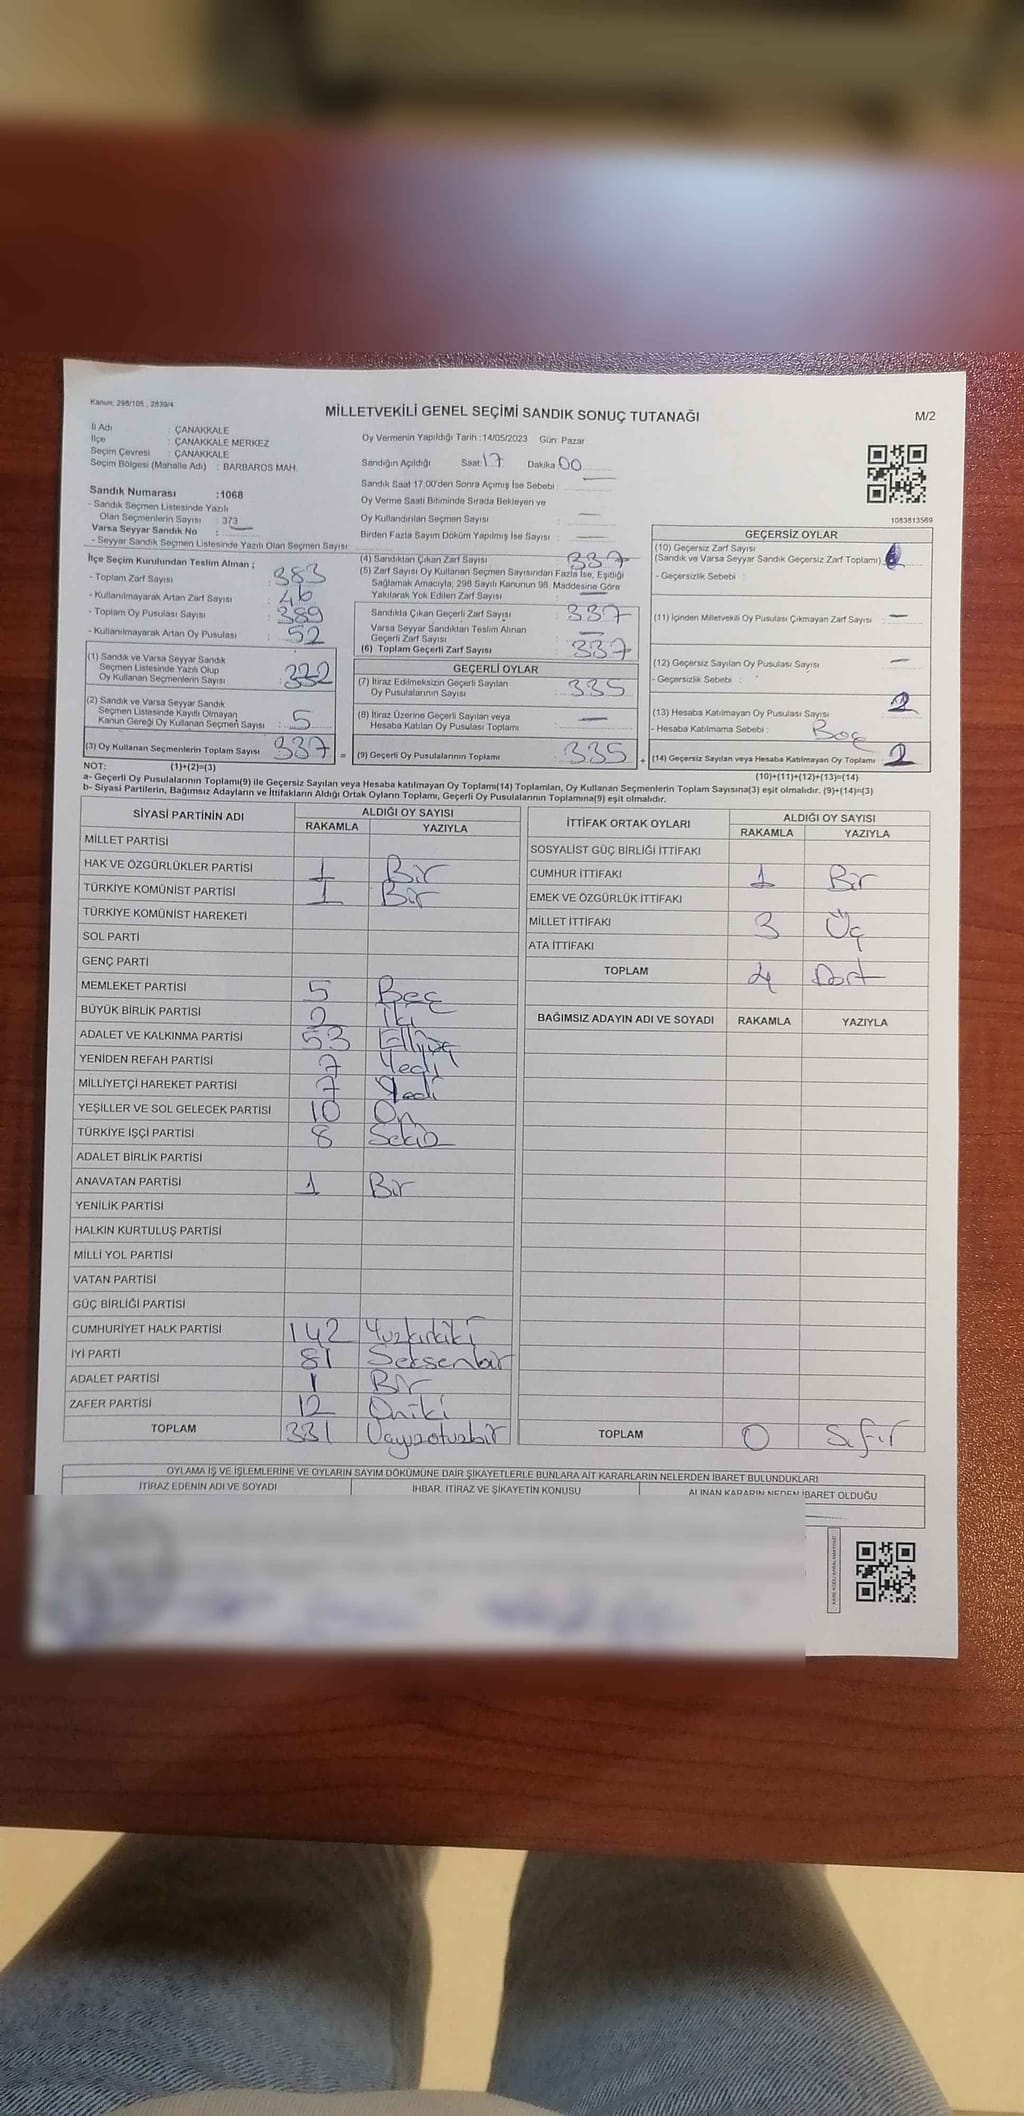 Kanun; 298/105 , 2839/4
MİLLETVEKİLİ GENEL SEÇİMİ SANDIK SONUÇ TUTANAĞI
M/2
İl Adı : ÇANAKKALE
İlçe : ÇANAKKALE MERKEZ
Seçim Çevresi : ÇANAKKALE
Seçim Bölgesi (Mahalle Adı) : BARBAROS MAH.
Sandık Numarası :1068
- Sandık Seçmen Listesinde Yazılı
Olan Seçmenlerin Sayısı : 373
Varsa Seyyar Sandık No :
- Seyyar Sandık Seçmen Listesinde Yazılı Olan Seçmen Sayısı:
Oy Vermenin Yapıldığı Tarih :14/05/2023 Gün: Pazar
Sandığın Açıldığı Saat 17 Dakika 00
Sandık Saat 17:00'den Sonra Açımış İse Sebebi
Oy Verme Saati Bitiminde Sırada Bekleyen ve
Oy Kullandırılan Seçmen Sayısı —
Birden Fazla Sayım Döküm Yapılmış İse Sayısı : —
1083813569
İlçe Seçim Kurulundan Teslim Alınan ;
- Toplam Zarf Sayısı : 383
- Kullanılmayarak Artan Zarf Sayısı : 46
- Toplam Oy Pusulası Sayısı : 389
- Kullanılmayarak Artan Oy Pusulası : 52
(1) Sandık ve Varsa Seyyar Sandık
Seçmen Listesinde Yazılı Olup
Oy Kullanan Seçmenlerin Sayısı : 332
(2) Sandık ve Varsa Seyyar Sandık
Seçmen Listesinde Kayıtlı Olmayan
Kanun Gereği Oy Kullanan Seçmen Sayısı : 5
(3) Oy Kullanan Seçmenlerin Toplam Sayısı : 337 =
(4) Sandıktan Çıkan Zarf Sayısı : 337
(5) Zarf Sayısı Oy Kullanan Seçmen Sayısından Fazla İse, Eşitliği
Sağlamak Amacıyla; 298 Sayılı Kanunun 98. Maddesine Göre
Yakılarak Yok Edilen Zarf Sayısı : —
Sandıkta Çıkan Geçerli Zarf Sayısı : 337
Varsa Seyyar Sandıktan Teslim Alınan
Geçerli Zarf Sayısı : —
(6) Toplam Geçerli Zarf Sayısı : 337
GEÇERLİ OYLAR
(7) İtiraz Edilmeksizin Geçerli Sayılan
Oy Pusulalarının Sayısı : 335
(8) İtiraz Üzerine Geçerli Sayılan veya
Hesaba Katılan Oy Pusulası Toplamı : —
(9) Geçerli Oy Pusulalarının Toplamı : 335 +
GEÇERSİZ OYLAR
(10) Geçersiz Zarf Sayısı
(Sandık ve Varsa Seyyar Sandık Geçersiz Zarf Toplamı) :
- Geçersizlik Sebebi :
(11) İçinden Milletvekili Oy Pusulası Çıkmayan Zarf Sayısı : —
(12) Geçersiz Sayılan Oy Pusulası Sayısı : —
- Geçersizlik Sebebi :
(13) Hesaba Katılmayan Oy Pusulası Sayısı : 2
- Hesaba Katılmama Sebebi : Boş
(14) Geçersiz Sayılan veya Hesaba Katılmayan Oy Toplamı : 2
NOT: (1)+(2)=(3) (10)+(11)+(12)+(13)=(14)
a- Geçerli Oy Pusulalarının Toplamı(9) ile Geçersiz Sayılan veya Hesaba katılmayan Oy Toplamı(14) Toplamları, Oy Kullanan Seçmenlerin Toplam Sayısına(3) eşit olmalıdır. (9)+(14)=(3)
b- Siyasi Partilerin, Bağımsız Adayların ve İttifakların Aldığı Ortak Oyların Toplamı, Geçerli Oy Pusulalarının Toplamına(9) eşit olmalıdır.
SİYASİ PARTİNİN ADI ALDIĞI OY SAYISI
RAKAMLA YAZIYLA
MİLLET PARTİSİ
HAK VE ÖZGÜRLÜKLER PARTİSİ 1 Bir
TÜRKİYE KOMÜNİST PARTİSİ 1 Bir
TÜRKİYE KOMÜNİST HAREKETİ
SOL PARTİ
GENÇ PARTİ
MEMLEKET PARTİSİ 5 Beş
BÜYÜK BİRLİK PARTİSİ 2 İki
ADALET VE KALKINMA PARTİSİ 53 Elliüç
YENİDEN REFAH PARTİSİ 7 Yedi
MİLLİYETÇİ HAREKET PARTİSİ 7 Yedi
YEŞİLLER VE SOL GELECEK PARTİSİ 10 On
TÜRKİYE İŞÇİ PARTİSİ 8 Sekiz
ADALET BİRLİK PARTİSİ
ANAVATAN PARTİSİ 1 Bir
YENİLİK PARTİSİ
HALKIN KURTULUŞ PARTİSİ
MİLLİ YOL PARTİSİ
VATAN PARTİSİ
GÜÇ BİRLİĞİ PARTİSİ
CUMHURİYET HALK PARTİSİ 142 Yüzkırkiki
İYİ PARTİ 81 Seksenbir
ADALET PARTİSİ 1 Bir
ZAFER PARTİSİ 12 Oniki
TOPLAM 331 Üçyüzotuzbir
İTTİFAK ORTAK OYLARI ALDIĞI OY SAYISI
RAKAMLA YAZIYLA
SOSYALİST GÜÇ BİRLİĞİ İTTİFAKI
CUMHUR İTTİFAKI 1 Bir
EMEK VE ÖZGÜRLÜK İTTİFAKI
MİLLET İTTİFAKI 3 Üç
ATA İTTİFAKI
TOPLAM 4 Dört
BAĞIMSIZ ADAYIN ADI VE SOYADI RAKAMLA YAZIYLA
TOPLAM 0 Sıfır
OYLAMA İŞ VE İŞLEMLERİNE VE OYLARIN SAYIM DÖKÜMÜNE DAİR ŞİKAYETLERLE BUNLARA AİT KARARLARIN NELERDEN İBARET BULUNDUKLARI
İTİRAZ EDENİN ADI VE SOYADI İHBAR, İTİRAZ VE ŞİKAYETİN KONUSU ALINAN KARARIN NEDEN İBARET OLDUĞU